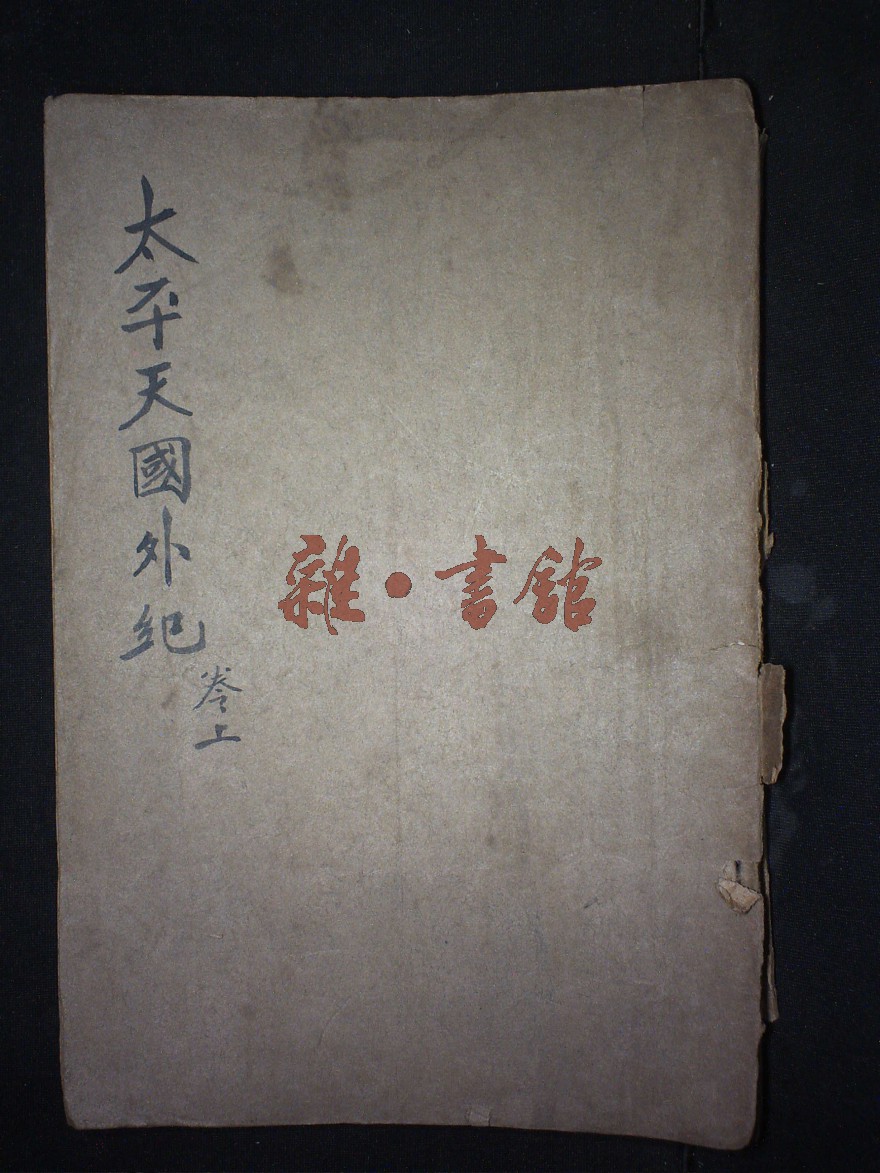 太平天國外紀
卷上
雜·書館